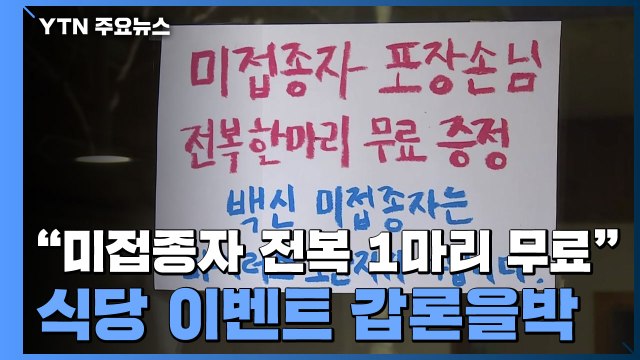 YTN 주요뉴스
미접종자 포장손님
전복한마리 무료 증정
백신 미접종자는
“미접종자 전복 1마리 무료”
식당 이벤트 갑론을박